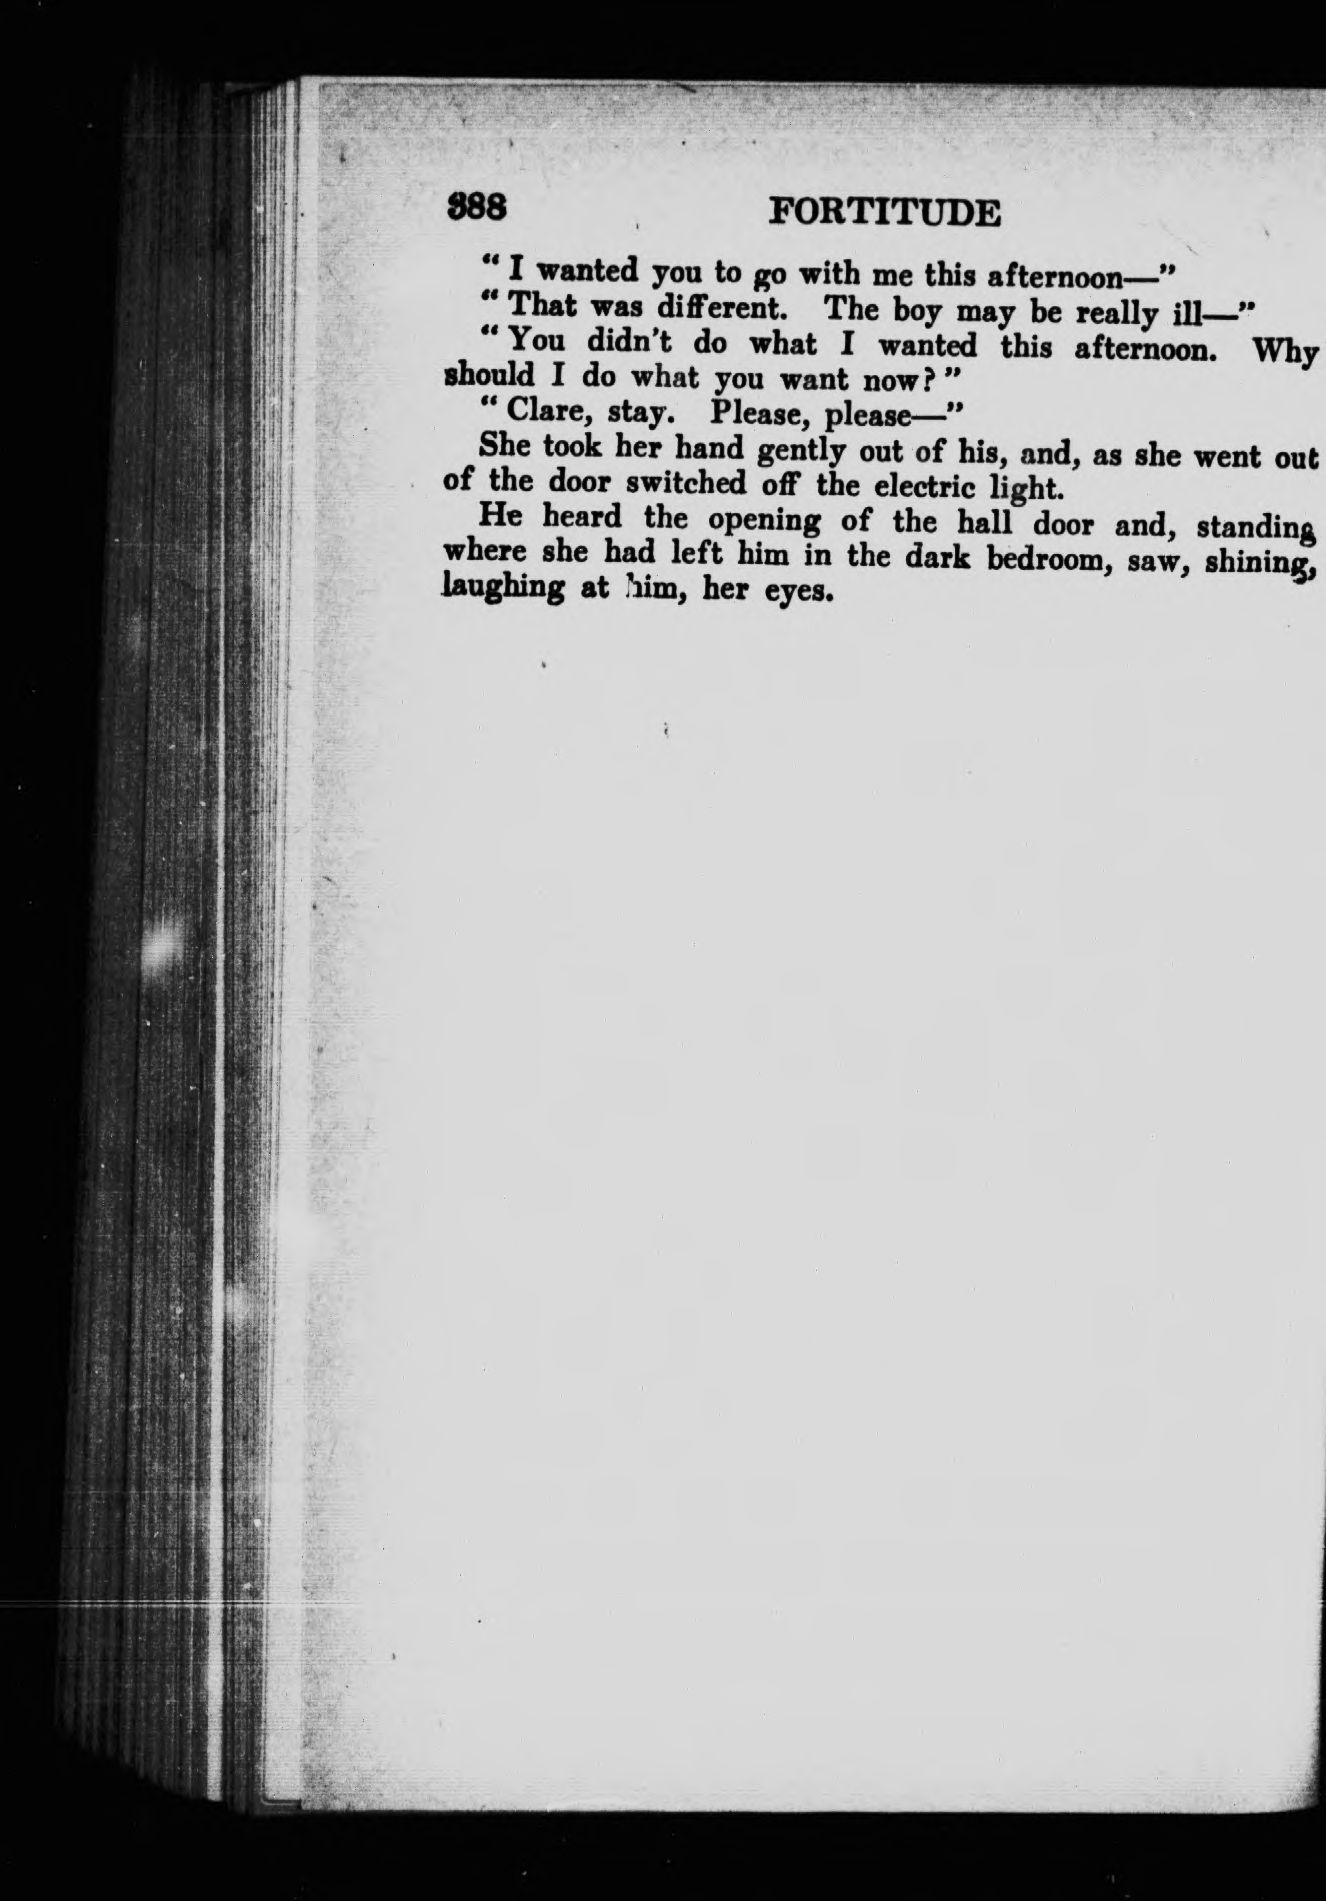 388 FORTITUDE
“ I wanted you to go with me this afternoon—”
“ That was different. The boy may be really ill—”
“ You didn't do what I wanted this afternoon. Why
should I do what you want now? ”
“ Clare, stay. Please, please—”
She took her hand gently out of his, and, as she went out
of the door switched off the electric light.
He heard the opening of the hall door and, standing
where she had left him in the dark bedroom, saw, shining,
laughing at him, her eyes.